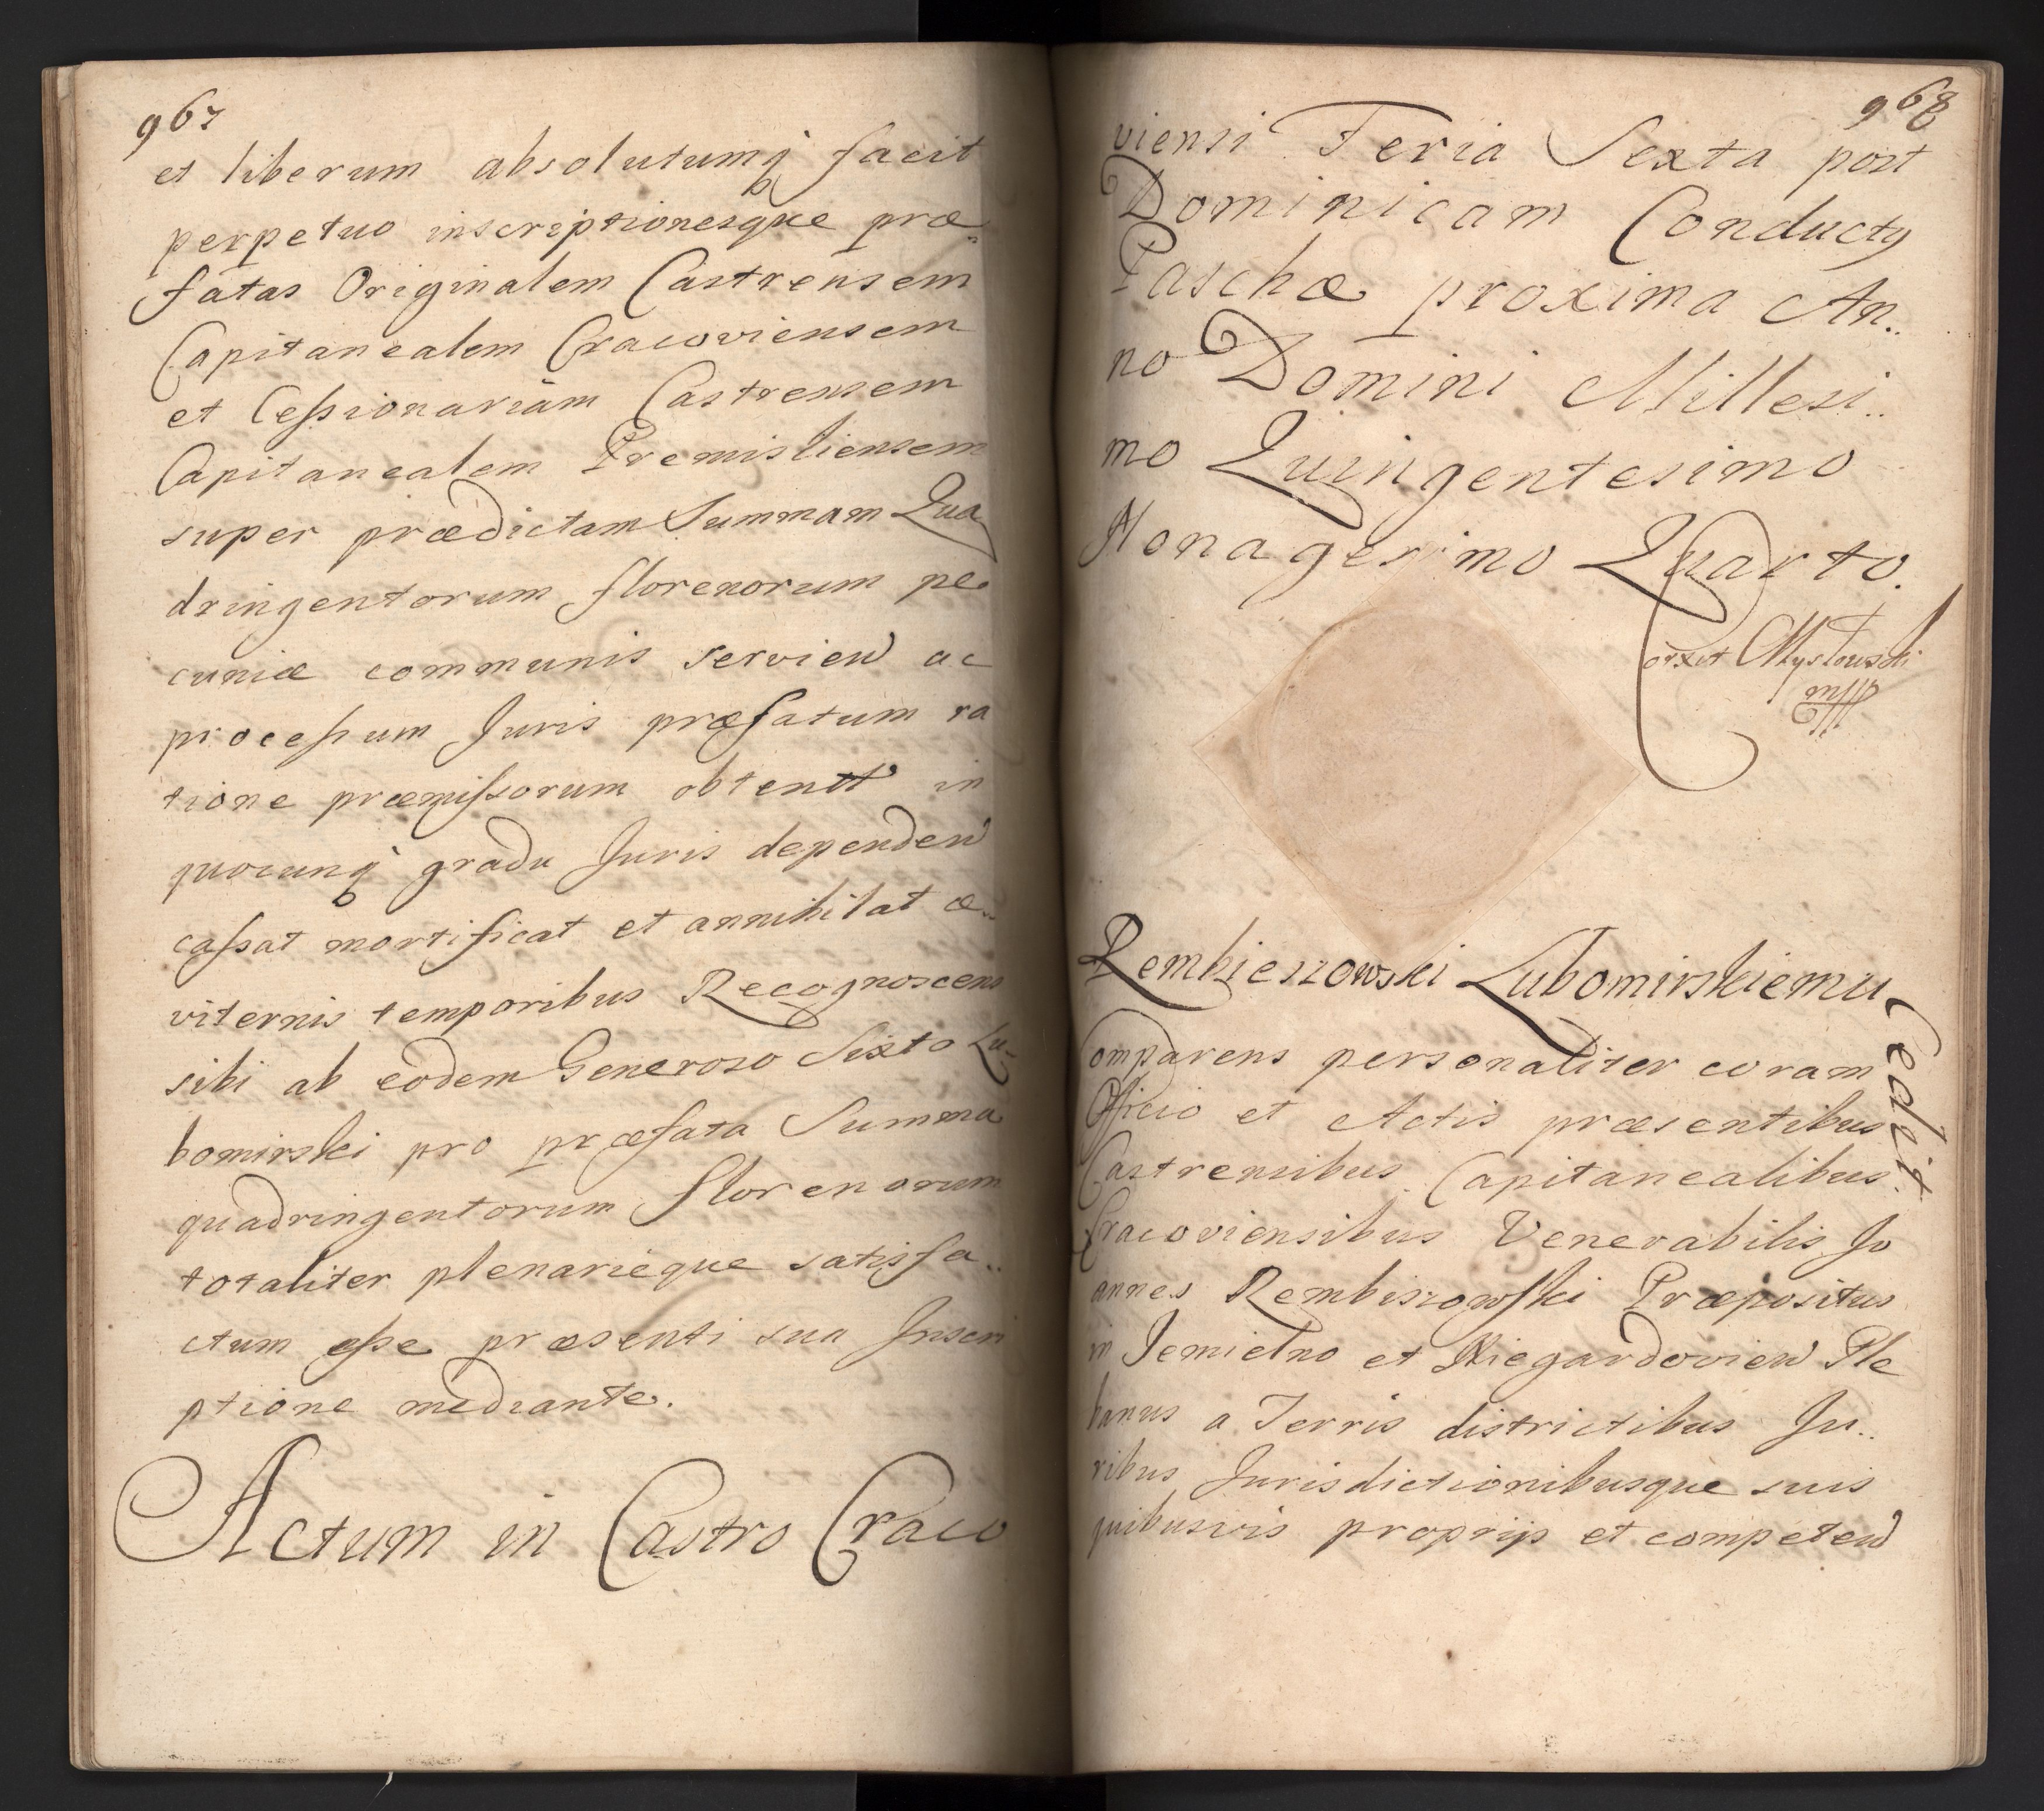 967
et liberum absolutumq́ facit
perpetuo inscriptionesque præ-
fatas Originalem Castrensem
Capitanealem Cracoviensem
et Cessionariam Castrensem
Capitanealem Premisliensem
super prædictam Summam Qua
dringentorum florenorum pe-
cuniæ communis servien ac
processum Juris præfatum ra
tione præmissorum obtentt in
quocunq́ gradu Juris dependen
cassat mortificat et annihilat æ..
viternis temporibus Recognoscens
sibi ab eodem Generoso Sixto Lu-
bomirski pro præfata Summa
quadringentorum florenorum
totaliter plenarieque satisfa..
ctum esse præsenti sua Inscri
ptione mediante.
Actum in Castro Craco
968
viensi Feria Sexta post
Dominicam Conductg
Paschæ proxima An..
no Domini Millesi..
mo Quingentesimo
Nonagesimo Quarto.
Mystowski
mpp
Rembieszowski Lubomirskiemu
Cedit
Comparens personaliter coram
Officio et Actis præsentibus
Castrensibus Capitanealibus
Cracoviensibus Venerabilis Jo
annes Rembiszowski Præpositus
in Jemielno et Niegardovien Ple
banus a Terris districtibus Ju..
ribus Jurisdictionibusque suis
quibusvis proprijs et competen